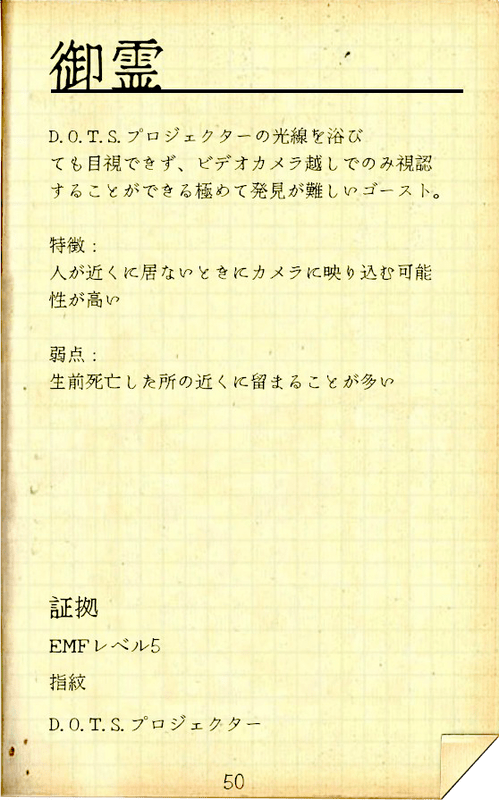 御霊
D.O.T.S.プロジェクターの光線を浴び
ても目視できず、ビデオカメラ越しでのみ視認
することができる極めて発見が難しいゴースト。
特徴：
人が近くに居ないときにカメラに映り込む可能
性が高い
弱点：
生前死亡した所の近くに留まることが多い
証拠
EMFレベル5
指紋
D.O.T.S.プロジェクター
50